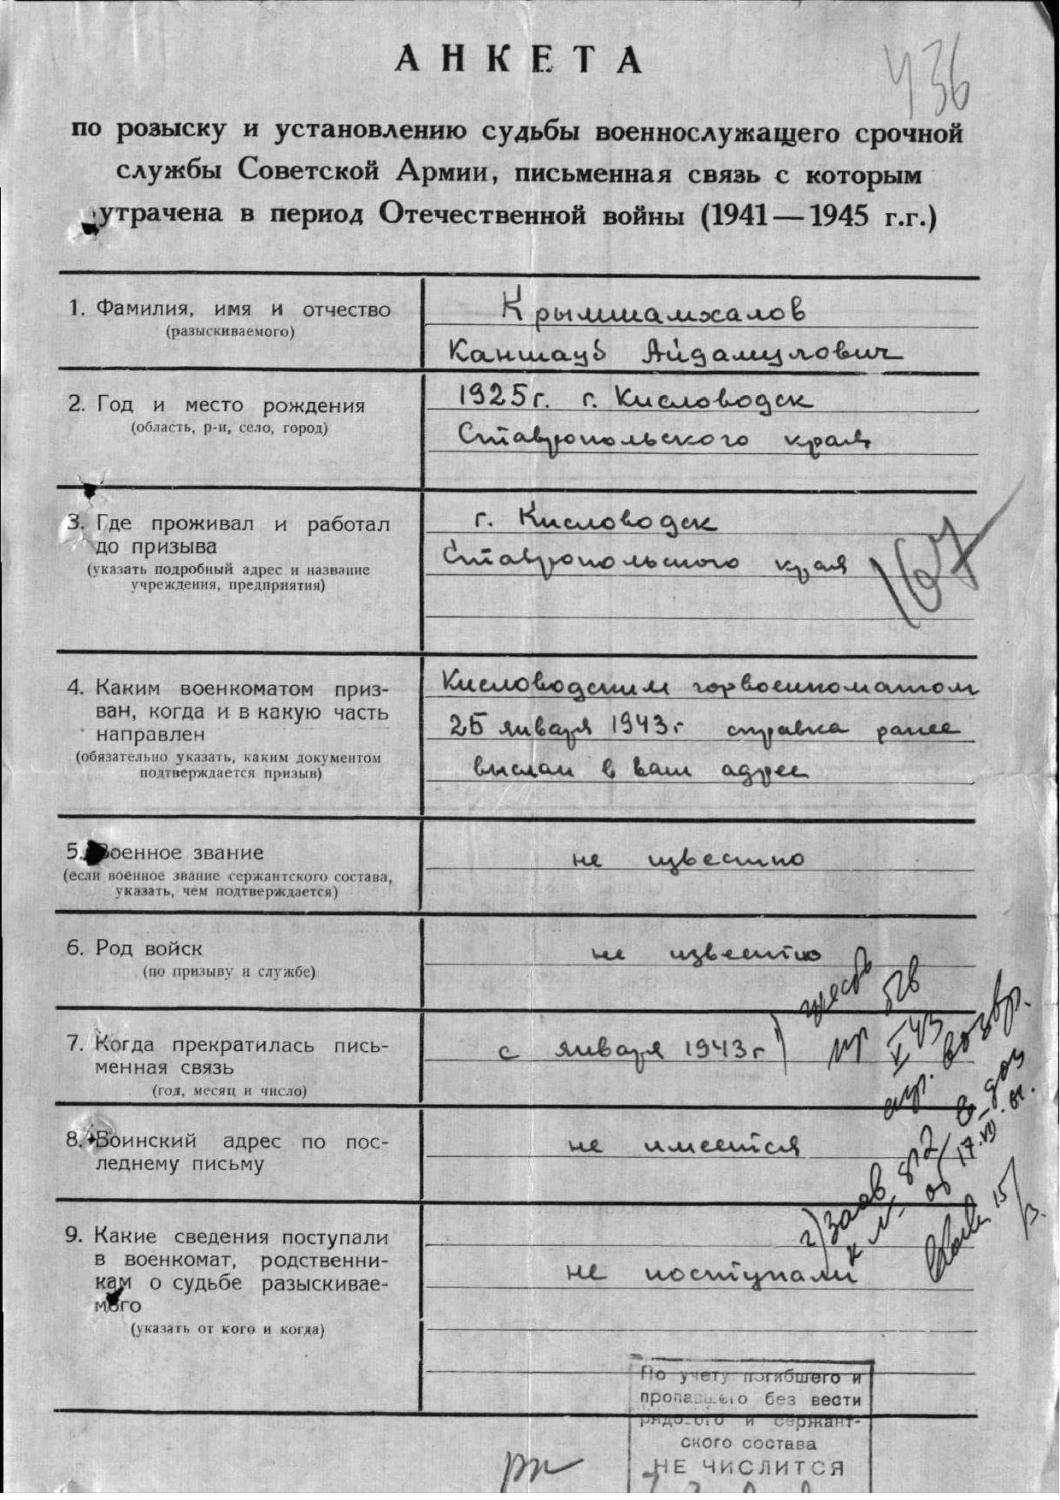 АНКЕТА
436
по розыску и установлению судьбы военнослужащего срочной
службы Советской Армии, письменная связь с которым
утрачена в период Отечественной войны (1941—1945 г.г.)
1. Фамилия, имя и отчество
(разыскиваемого)
Крымшамхалов
Каншауб Айдамулович
2. Год и место рождения
(область, р-н, село, город)
1925г. г. Кисловодск
Ставропольского края
3. Где проживал и работал
до призыва
(указать подробный адрес и название
учреждения, предприятия)
г. Кисловодск
Ставропольского края
167
4. Каким военкоматом приз-
ван, когда и в какую часть
направлен
(обязательно указать, каким документом
подтверждается призыв)
Кисловодским горвоенкоматом
25 января 1943г справка ранее
выслан в ваш адрес
5. Военное звание
(если военное звание сержантского состава,
указать, чем подтверждается)
не известно
6. Род войск
(по призыву и службе)
не известно
7. Когда прекратилась пись-
менная связь
(год, месяц и число)
с января 1943г
8. Воинский адрес по пос-
леднему письму
не имеется
9. Какие сведения поступали
в военкомат, родственни-
кам о судьбе разыскивае-
мого
(указать от кого и когда)
не поступали
По учету погибшего и
пропавшего без вести
рядового и сержант-
ского состава
НЕ ЧИСЛИТСЯ